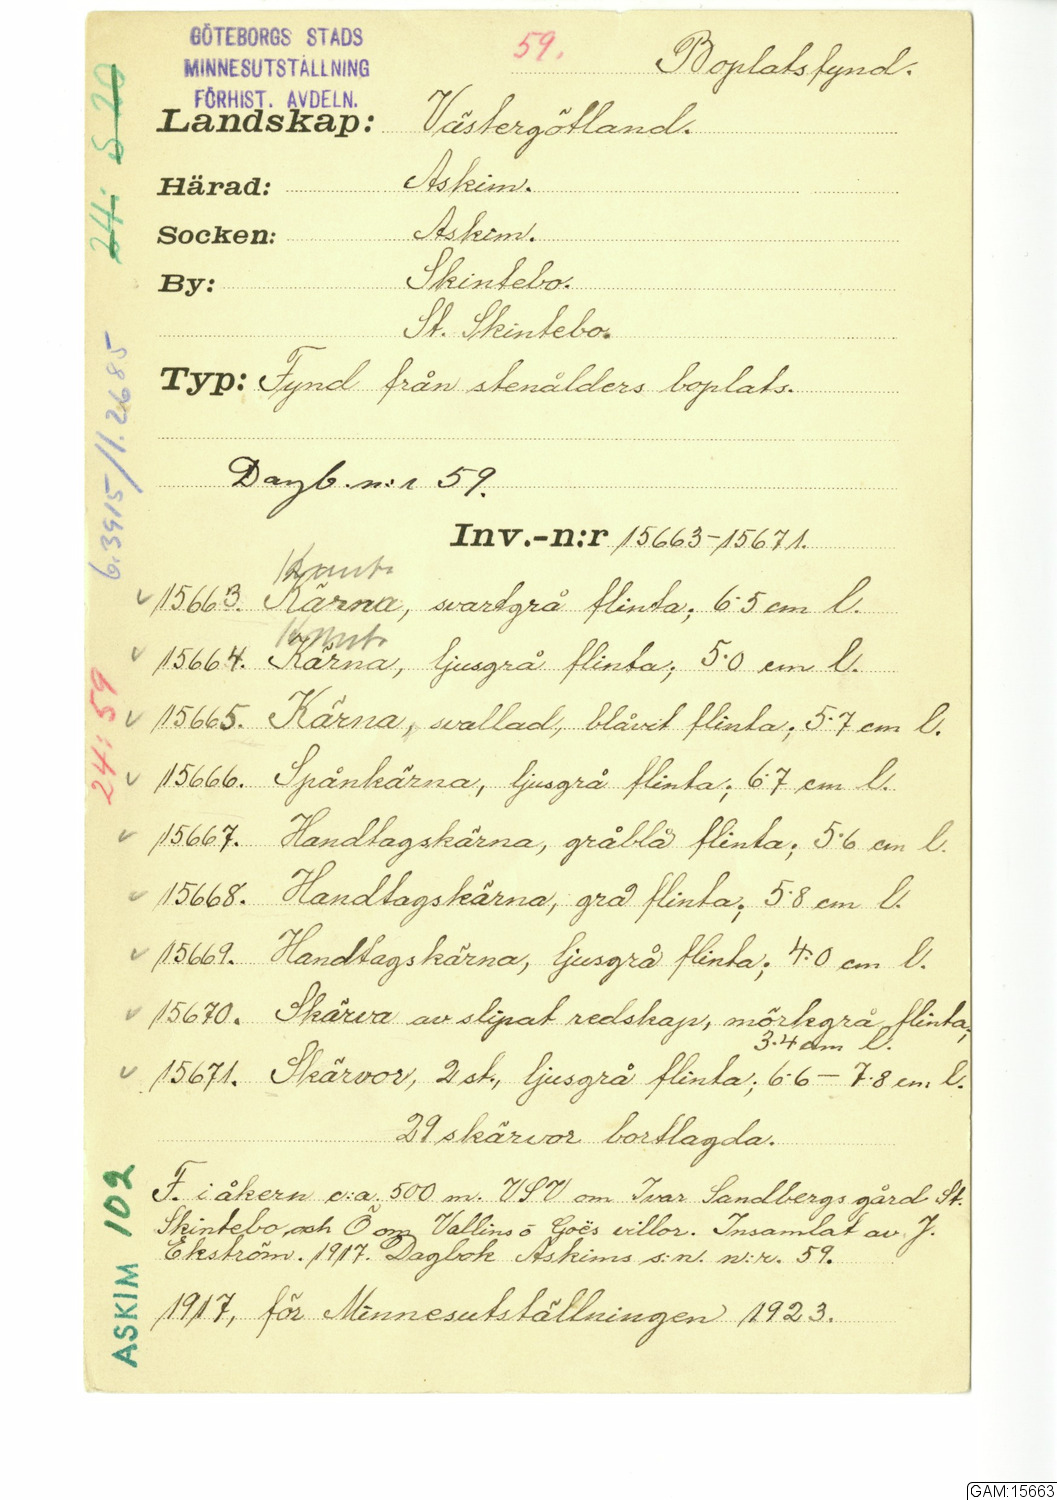 GÖTEBORGS STADS
MINNESUTSTÄLLNING
FÖRHIST. AVDELN.
59.
Boplatsfynd.
Landskap: Västergötland.
Härad: Askim.
Socken: Askim.
By: Skintebo.
St. Skintebo.
Typ: Fynd från stenålders boplats.
Dagb. n:r 59.
Inv.-n:r 15663-15671.
15663. Kärna, svartgrå flinta; 6.5 cm l.
15664. Kärna, ljusgrå flinta; 5.0 cm l.
15665. Kärna, svallad, blåvit flinta; 5.7 cm l.
15666. Spånkärna, ljusgrå flinta; 6.7 cm l.
15667. Handtagskärna, gråblå flinta; 5.6 cm l.
15668. Handtagskärna, grå flinta; 5.8 cm l.
15669. Handtagskärna, ljusgrå flinta; 4.0 cm l.
15670. Skärva av slipat redskap, mörkgrå flinta;
3.4 cm l.
15671. Skärvor, 2 st., ljusgrå flinta; 6.6 – 7.8 cm l.
29 skärvor bortlagda.
F. i åkern c:a 500 m. VSV om Ivar Sandbergs gård St.
Skintebo, och Ö om Vallins o Goës villor. Insamlat av J.
Ekström. 1917. Dagbok Askims s:n. n:r. 59.
1917, för Minnesutställningen 1923.
24: S 20
6.3915/1.2685
24: 59
ASKIM 102
GAM:15663